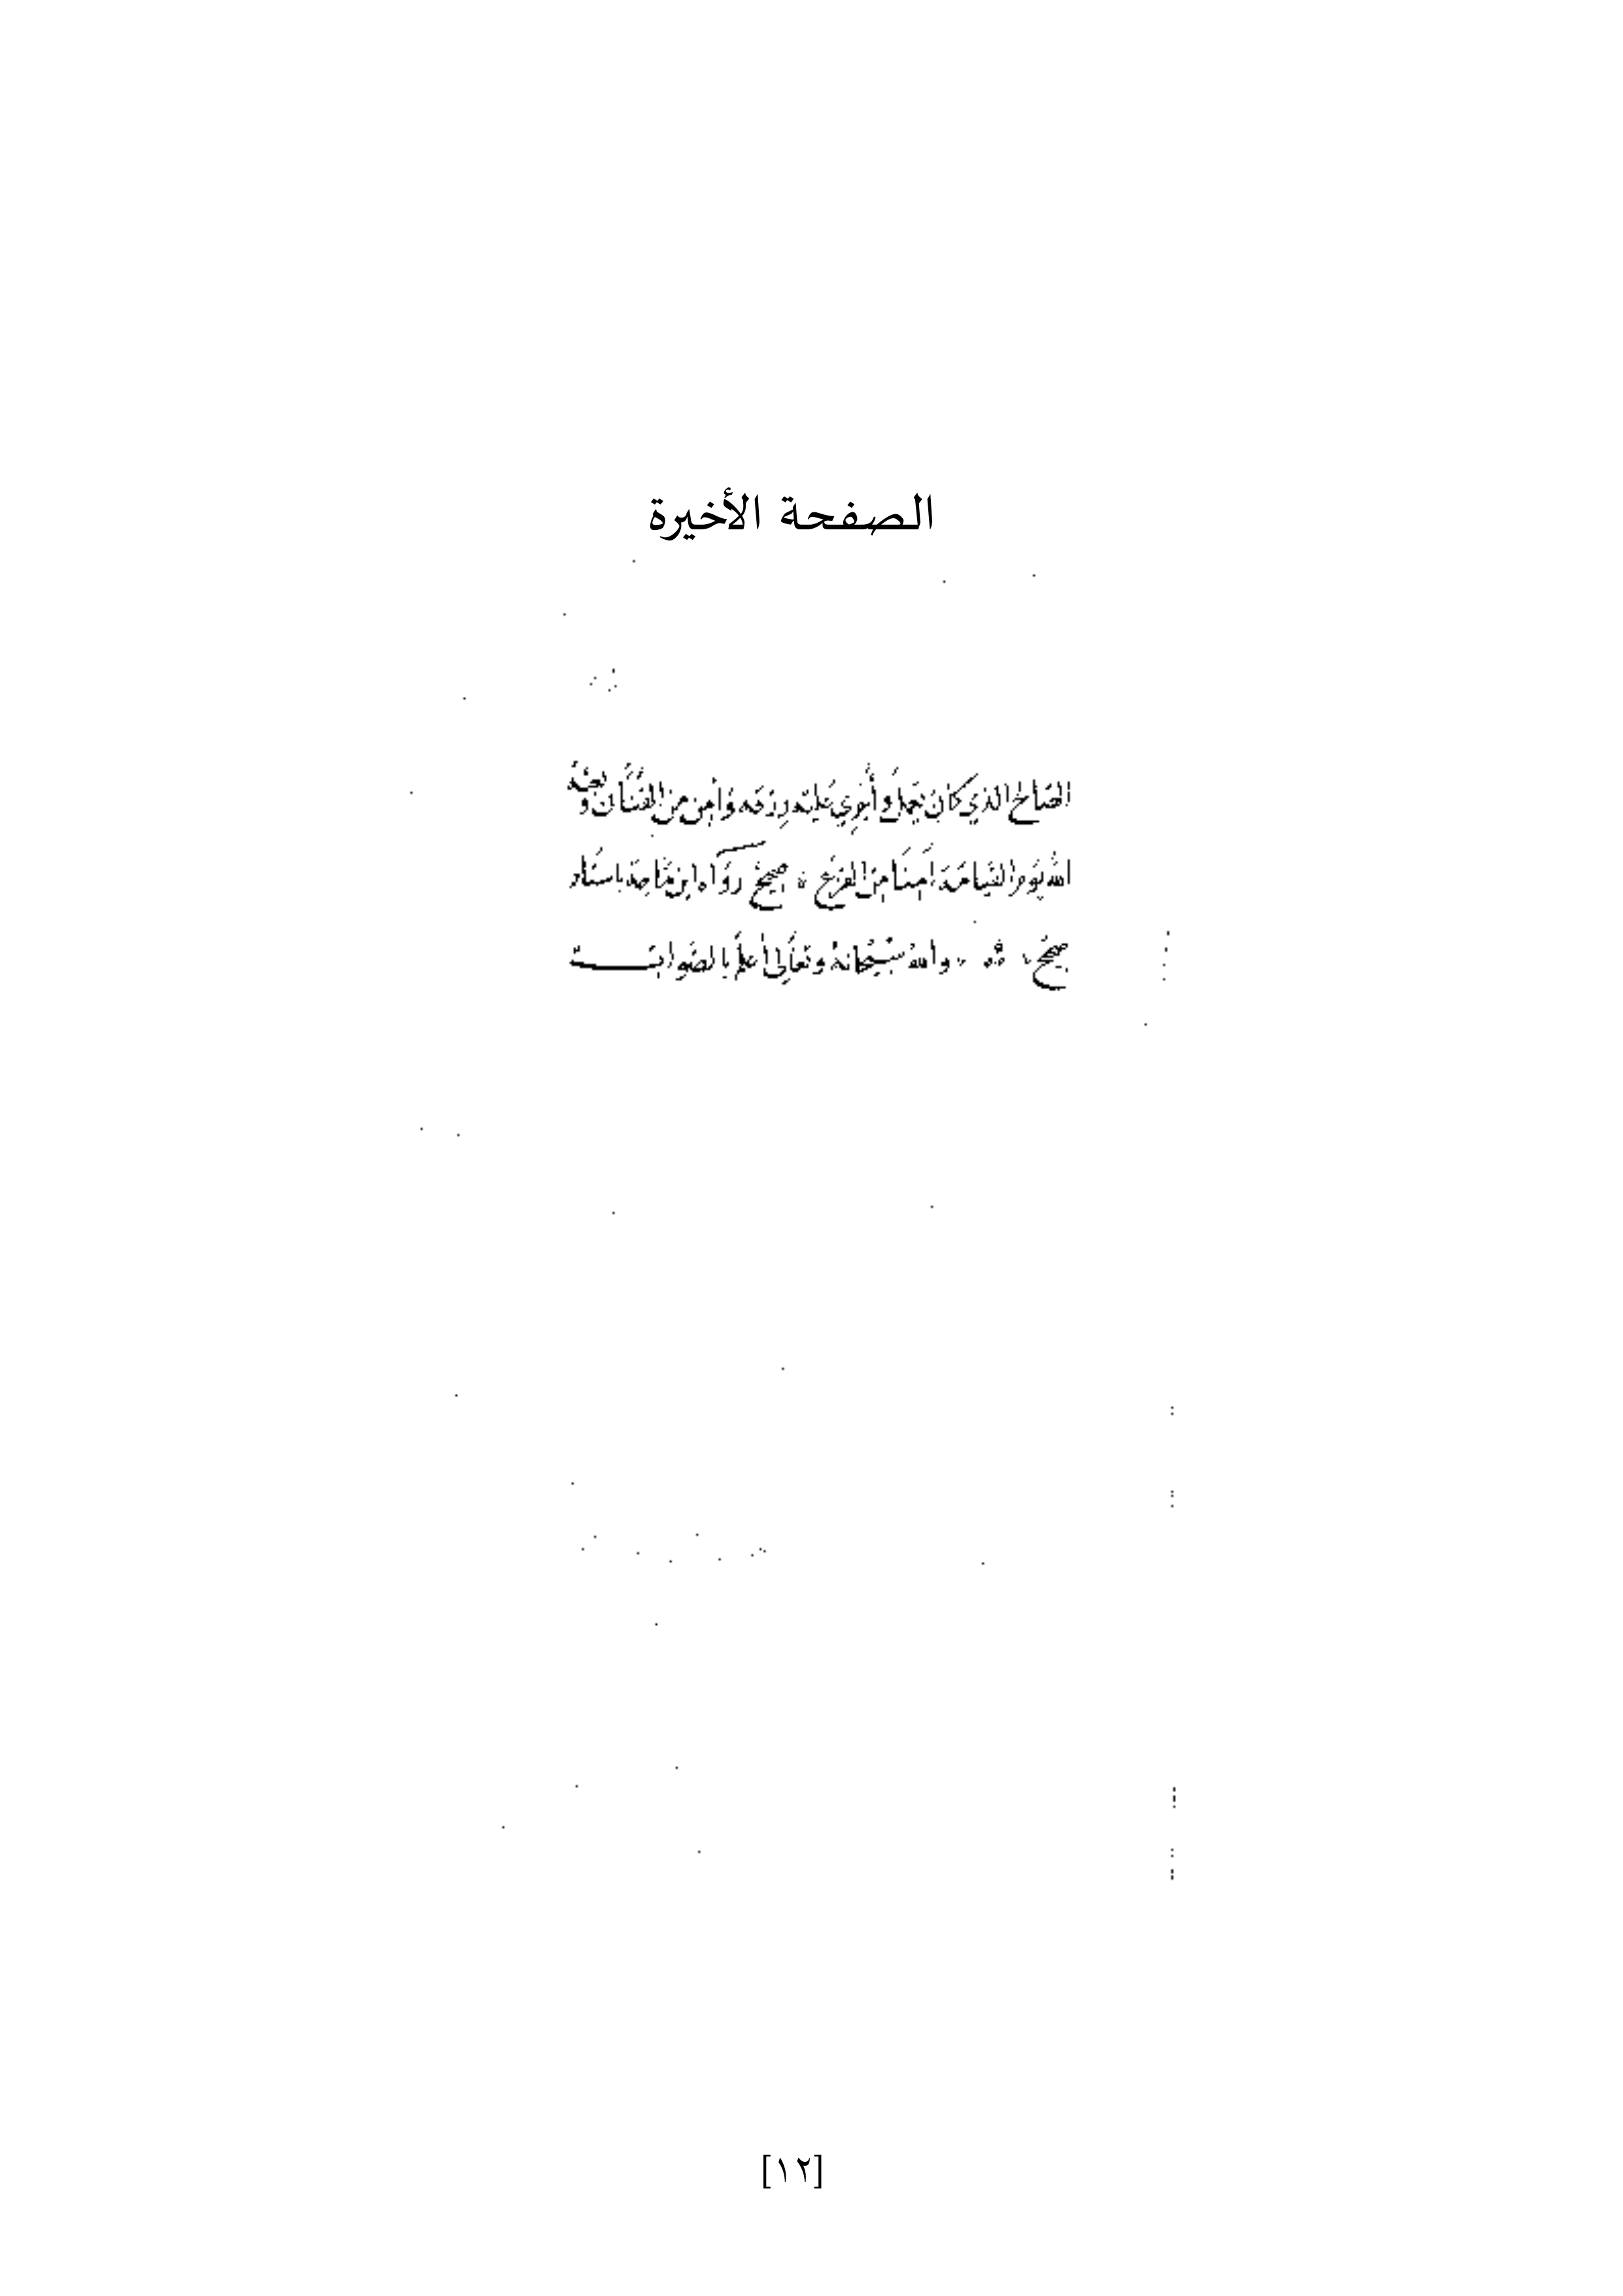 الصفحة الأخيرة
الصَالح الذي كان يَعمل وأُجري عَليه رزقه وَأمِن من الفَتَّان وَيبعثه
الله يَوم القيامَة آمِنًا مِنَ الفزع ۞ صحيح رَوَاه ابن مَاجة باسنَاد
صحيح ۞ والله سُبْحانهُ وتعَالى أعلم بالصَواب
[١٢]